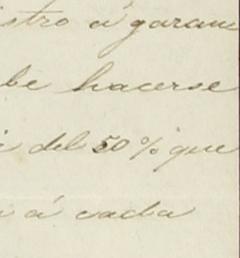 istro á garan
be hacerse
i del 50% que
a á cada